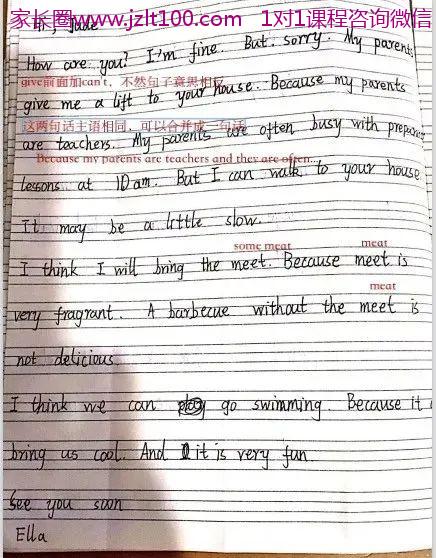 家长圈 www.jzlt100.com 1对1课程咨询微信
Hi, Jude
How are you? I'm fine. But. sorry. My parents
give前面加can't，不然句子意思相反
give me a lift to your house. Because my parents
这两句话主语相同，可以合并成一句话
are teachers. My parents are often busy with preparing
Because my parents are teachers and they are often...
lessons at 10am. But I can walk to your house
It may be a little slow.
some meat meat
I think I will bring the meet. Because meet is
meat
very fragrant. A barbecue without the meet is
not delicious
I think we can go swimming. Because it
bring us cool. And it is very fun.
See you soon
Ella